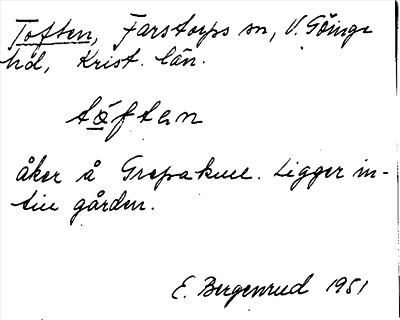 Toften, Farstorps sn, V. Göinge
hd, Krist. län.
tåften
åker å Grepakull. Ligger in-
till gården.
E. Bergenrud 1951